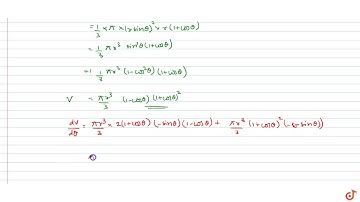 = 1/3 × π × (r sinθ)² × r (1+cosθ)
= 1/3 πr³ sin²θ (1+cosθ)
= 1/3 πr³ (1-cos²θ) (1+cosθ)
V = πr³/3 (1-cosθ) (1+cosθ)²
dV/dθ = πr³/3 × 2(1+cosθ) (-sinθ) (1-cosθ) + πr³/3 (1+cosθ)² (-(-sinθ))
doubtnut